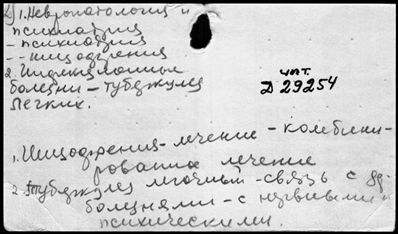 1. Невропатология и
психиатрия
- психиатрия
- - шизофрения
2. Инфекционные
болезни - туберкулез
легких.
чит.
Д 29254
1. Шизофрения - лечение - комбини-
рование лечение
2. туберкулез легочный - связь с др.
болезнями - с нервными и
психическими.